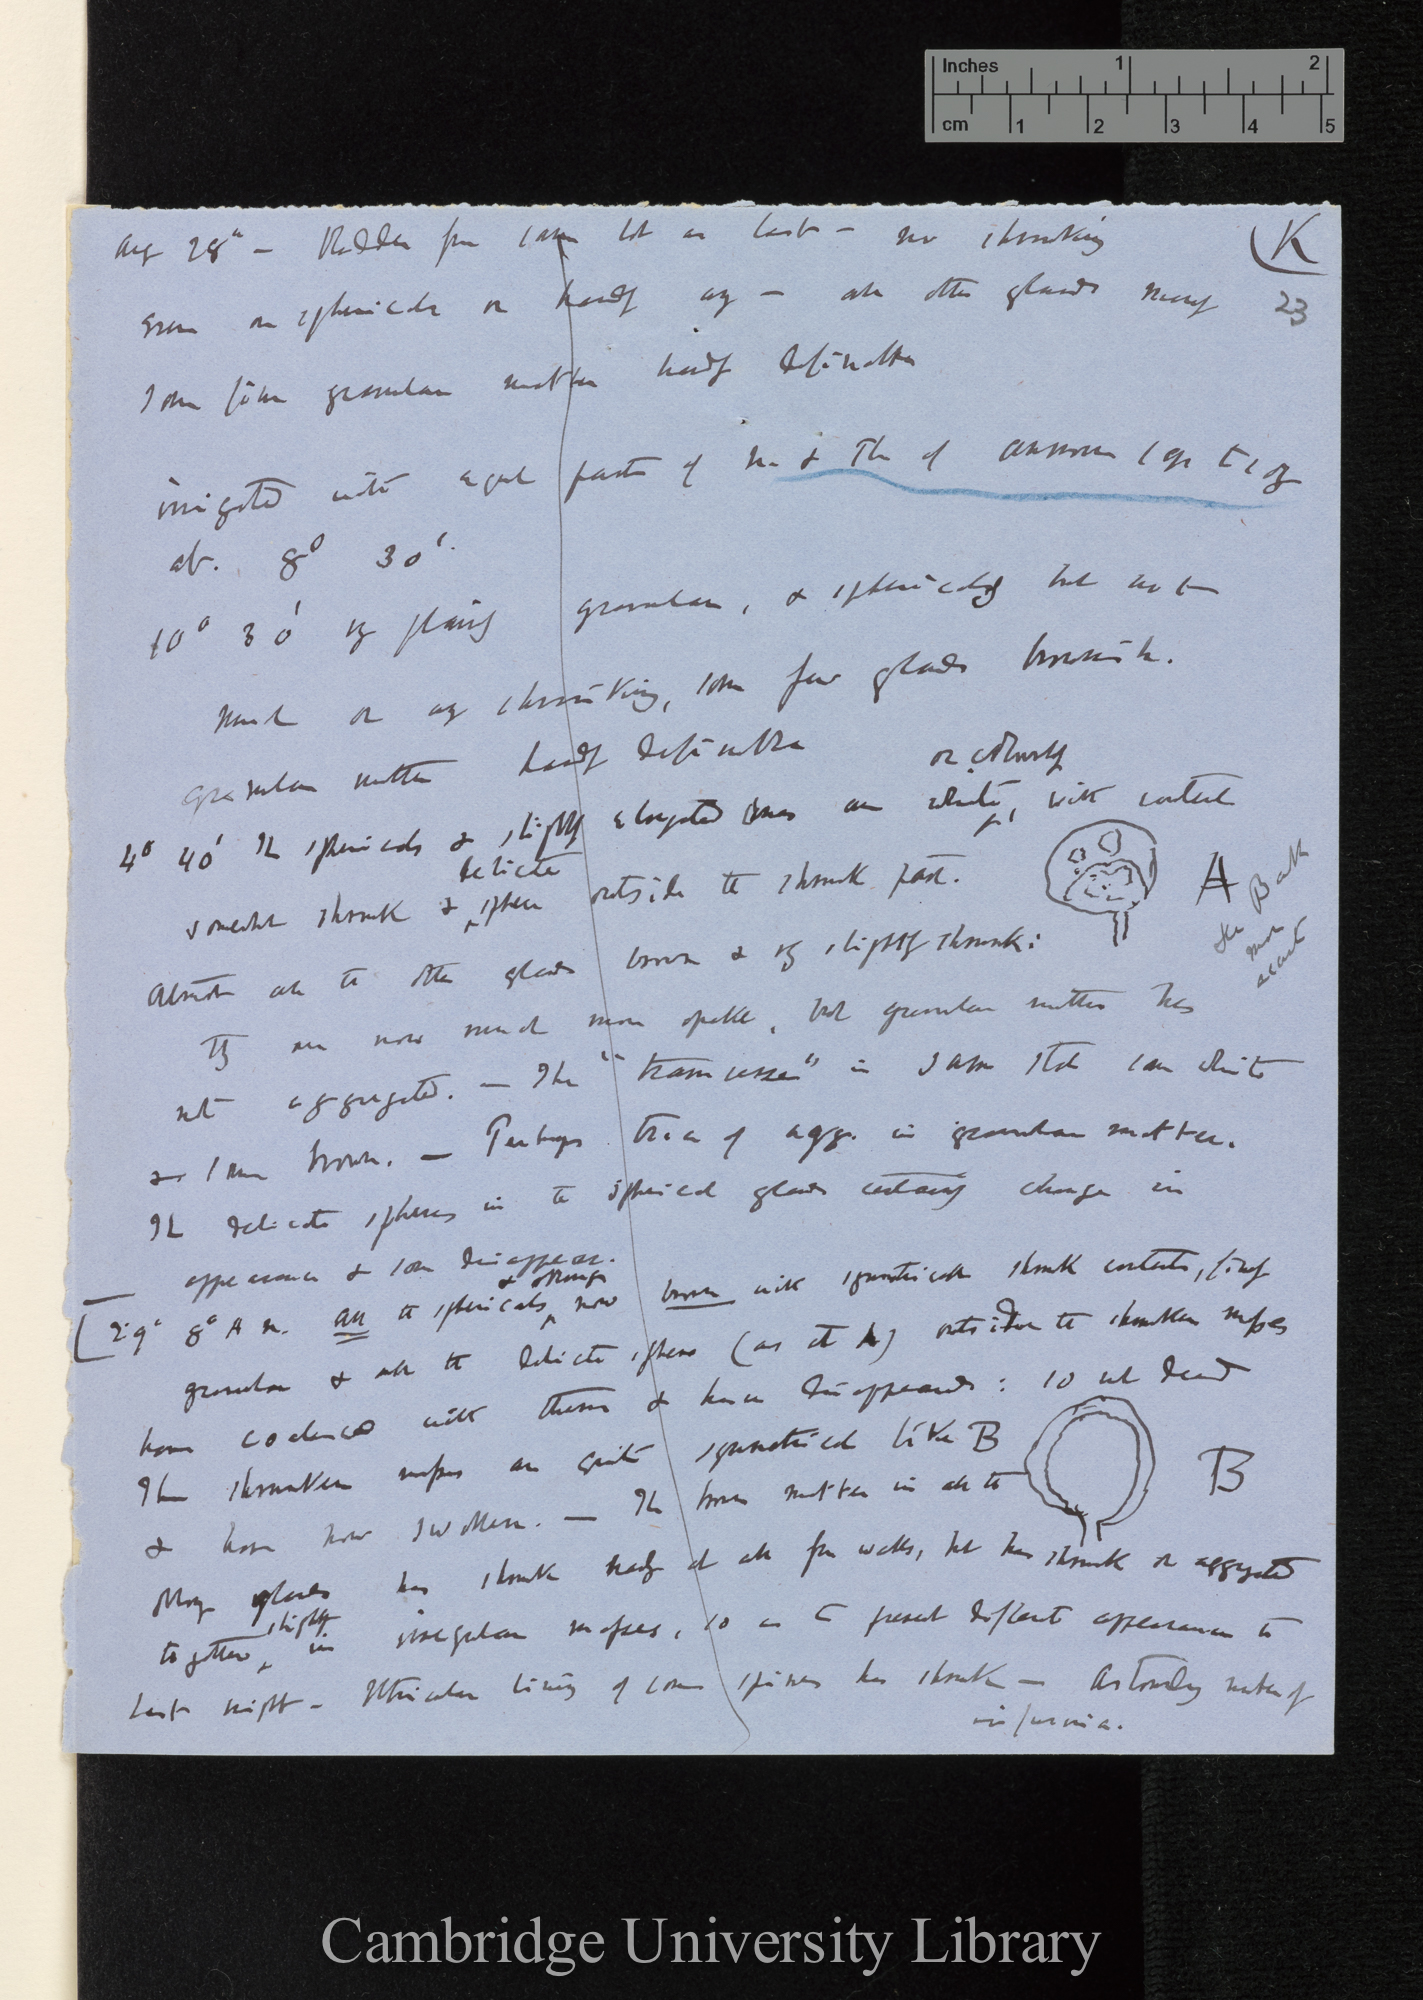 Inches 1 2
cm 1 2 3 4 5
K
23
Aug 28th — Bladder from same lot as last — no shrinking
even on sphericals or hardly any — all other glands nearly
some fine granular matter hardly definable
irrigated with equal parts of & of ammonia to 1 oz
at. 8° 30'.
10° 30' vy plainly granular, & sphericals but not
much or any shrinking, some few glands brownish.
granular matter hardly definable
or colourless
4° 40' The sphericals & slightly elongated ones are white, with contents
delicate
somewhat shrunk & spheres outside the shrunk part.
A
See B all more accurate
Almost all the other glands brown & vy slightly shrunk:
They are now much more opake, but granular matter has
not aggregated. — The " " in same state some white
& some brown. — Perhaps trace of aggr. in granular matter.
The delicate spheres in the spherical glands certainly change in
appearance & some disappear.
& oblongs
[29th 8° A m. all the sphericals now brown with symmetrical shrunk contents, finely
granular & all the delicate spheres (as at A) outside the shrunken masses
have coalesced with them & have disappeared: so not dead
The shrunken masses are quite symmetrical like B
B
& have now swollen. — The brown matter in all the
oblong glands has shrunk nearly at all from walls, but has shrunk or aggregated
slightly
together, in irregular masses, so as to present different appearance to
last night — Utricular lining of some spines has shrunk — Astonishing nature of
infusoria.
Cambridge University Library